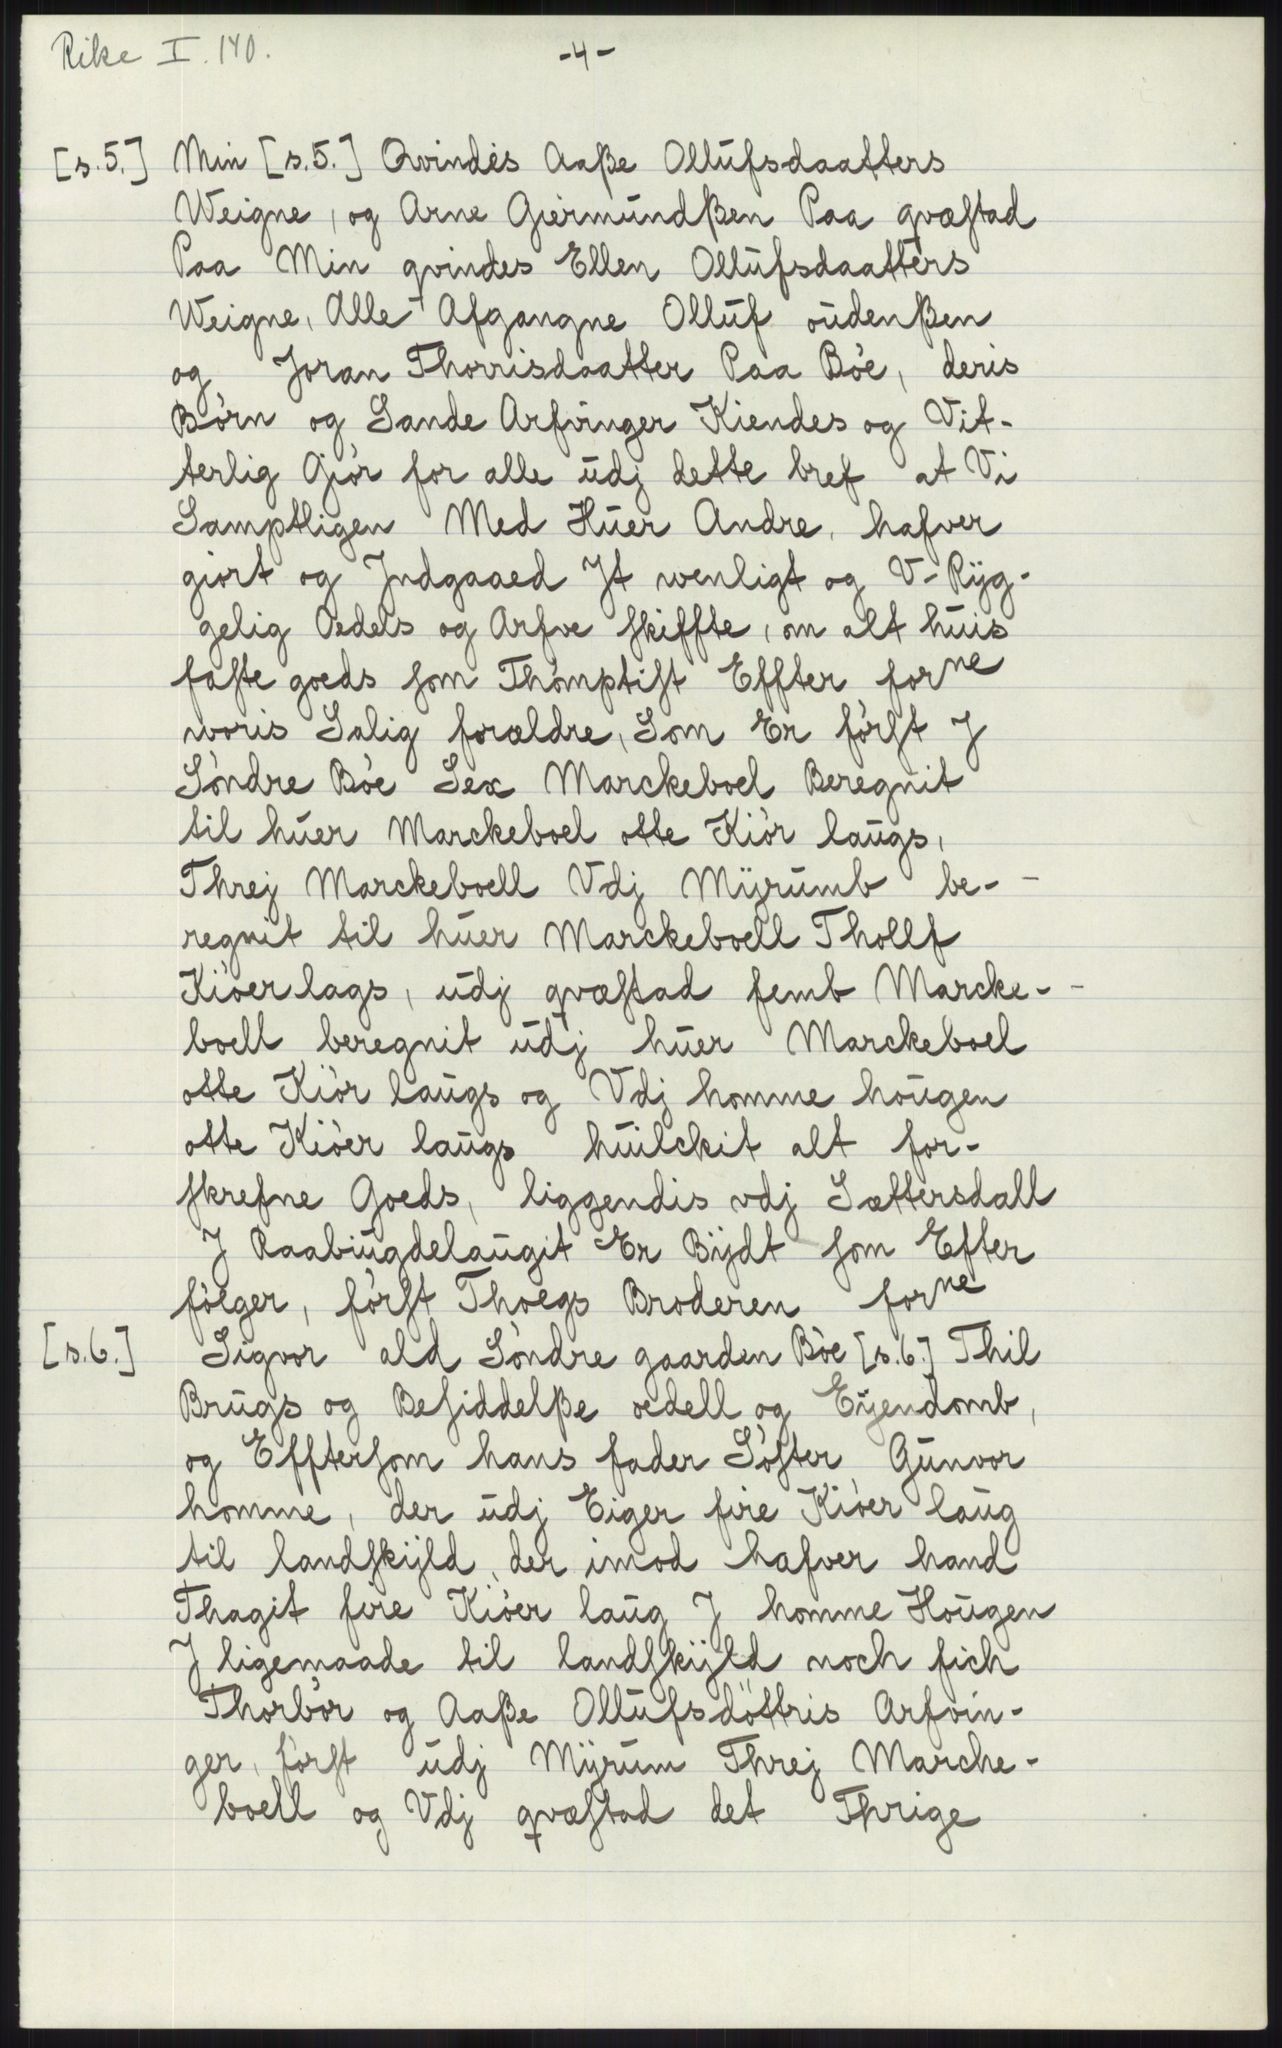 Rike I. 140.
-4-
[s.5.] Min [s.5.] Qvindes Aaße Ollufsdaatters
Weigne, og Arne Giermundßen Paa qvæstad
Paa Min qvindes Ellen Ollufsdaatters
Weigne, Alle Afgangne Olluf oudenßen
og Joran Thorrisdaatter Paa Bòe, deris
Bòrn og Sande Arfvinger Kiendes og Vit-
terlig Giòr for alle udj dette bref at Vi
Samptligen Med Huer Andre, hafver
giort og Jndgaaed Jt wenligt og V-Ryg-
gelig Oedels og Arfve skiffte, om alt huis
faste goeds som Thòmptist Effter forne
woris Salig forældre, Som Er fòrst J
Sòndre Bòe Sex Marckeboel Beregnit
til huer Marckeboel otte Kiòr laugs,
Threj Marckeboell Vdj Myrumb be-
regnit til huer Marckeboell Thollf
Kiòerlags, udj qvæstad femb Marcke-
boell beregnit udj huer Marckeboel
otte Kiòr laugs og Vdj homme hougen
otte Kiòer laugs huilckit alt for-
skrefne Goeds, liggendis vdj Sættersdall
J Raabiugdelaugit Er Bijdt som Efter
fòlger, fòrst Thoegs Broderen forne
[s.6.] Sigvor ald Sòndre gaarden Bòe [s.6.] Thil
Brugs og Besiddelße oedell og Eyendomb,
og Efftersom hans fader Sòster Gunvor
homme, der udj Eiger fire Kiòer laug
til landskijld, der imod hafver hand
Thagit fire Kiòer laug J homme Hougen
J ligemaade til landskijld noch fich
Thorbòr og Aaße Ollufsdöttris Arfvin-
ger, fòrst udj Myrum Threj Marche-
boell og Vdj qvæstad det Thrige